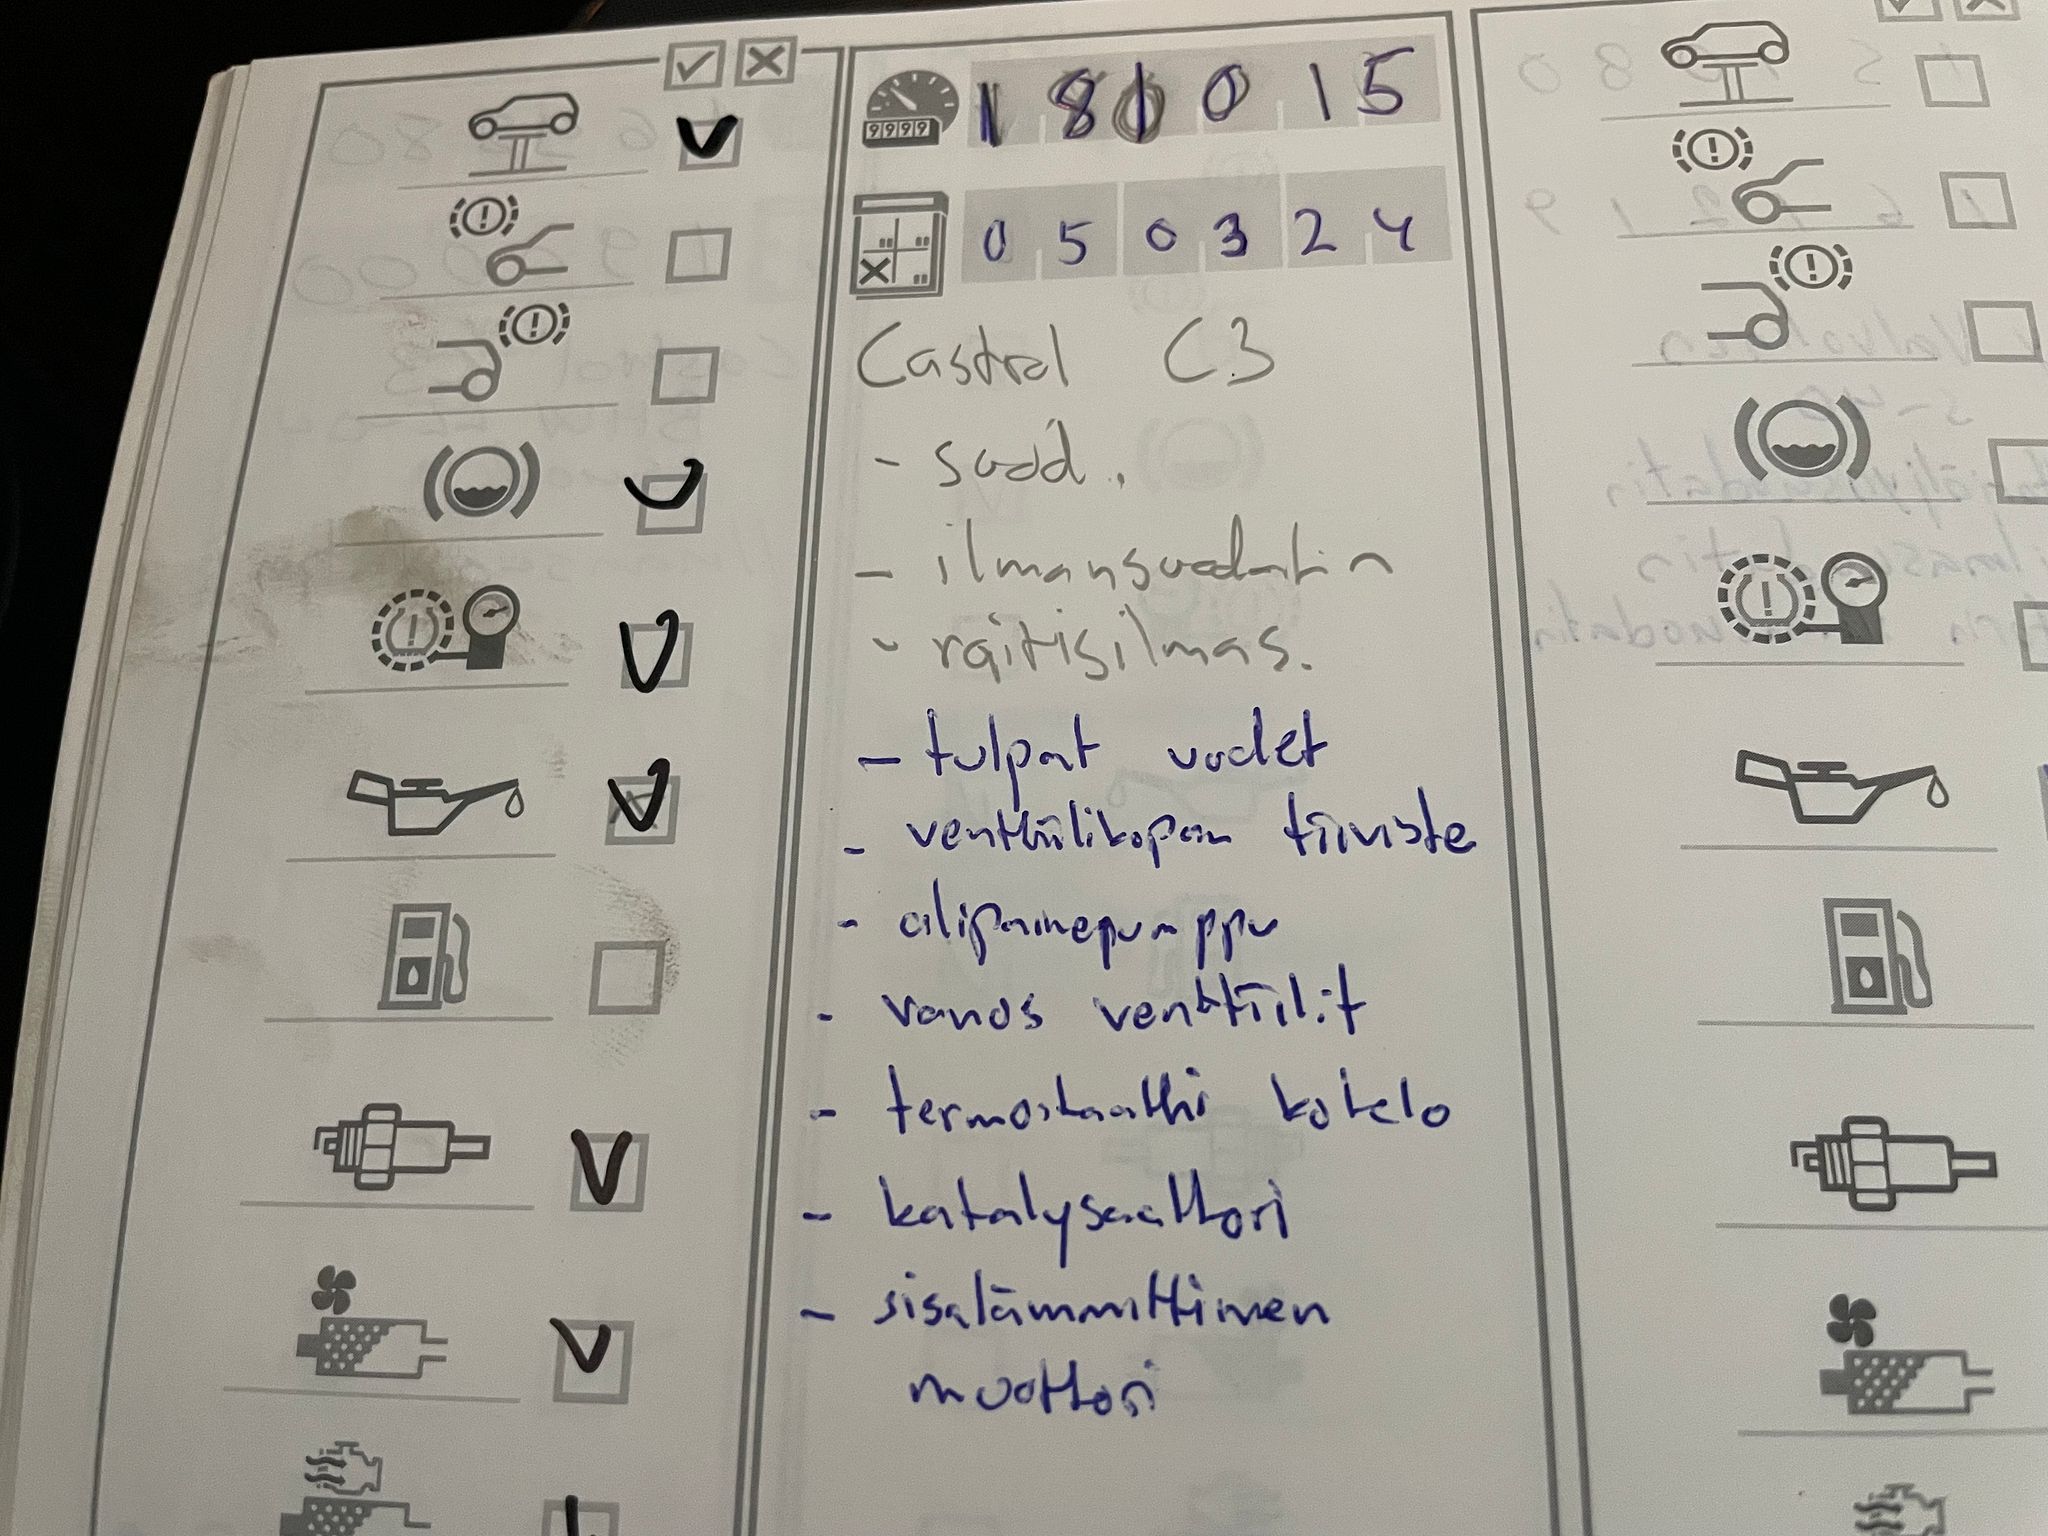 181015
050324
Castrol C3
- suod.
- ilmansuodatin
- raitisilmas.
- tulpat uudet
- venttiilikopan tiiviste
- alipainepumppu
- vanos venttiilit
- termostaatti kotelo
- katalysaattori
- sisälämmittimen
muottori